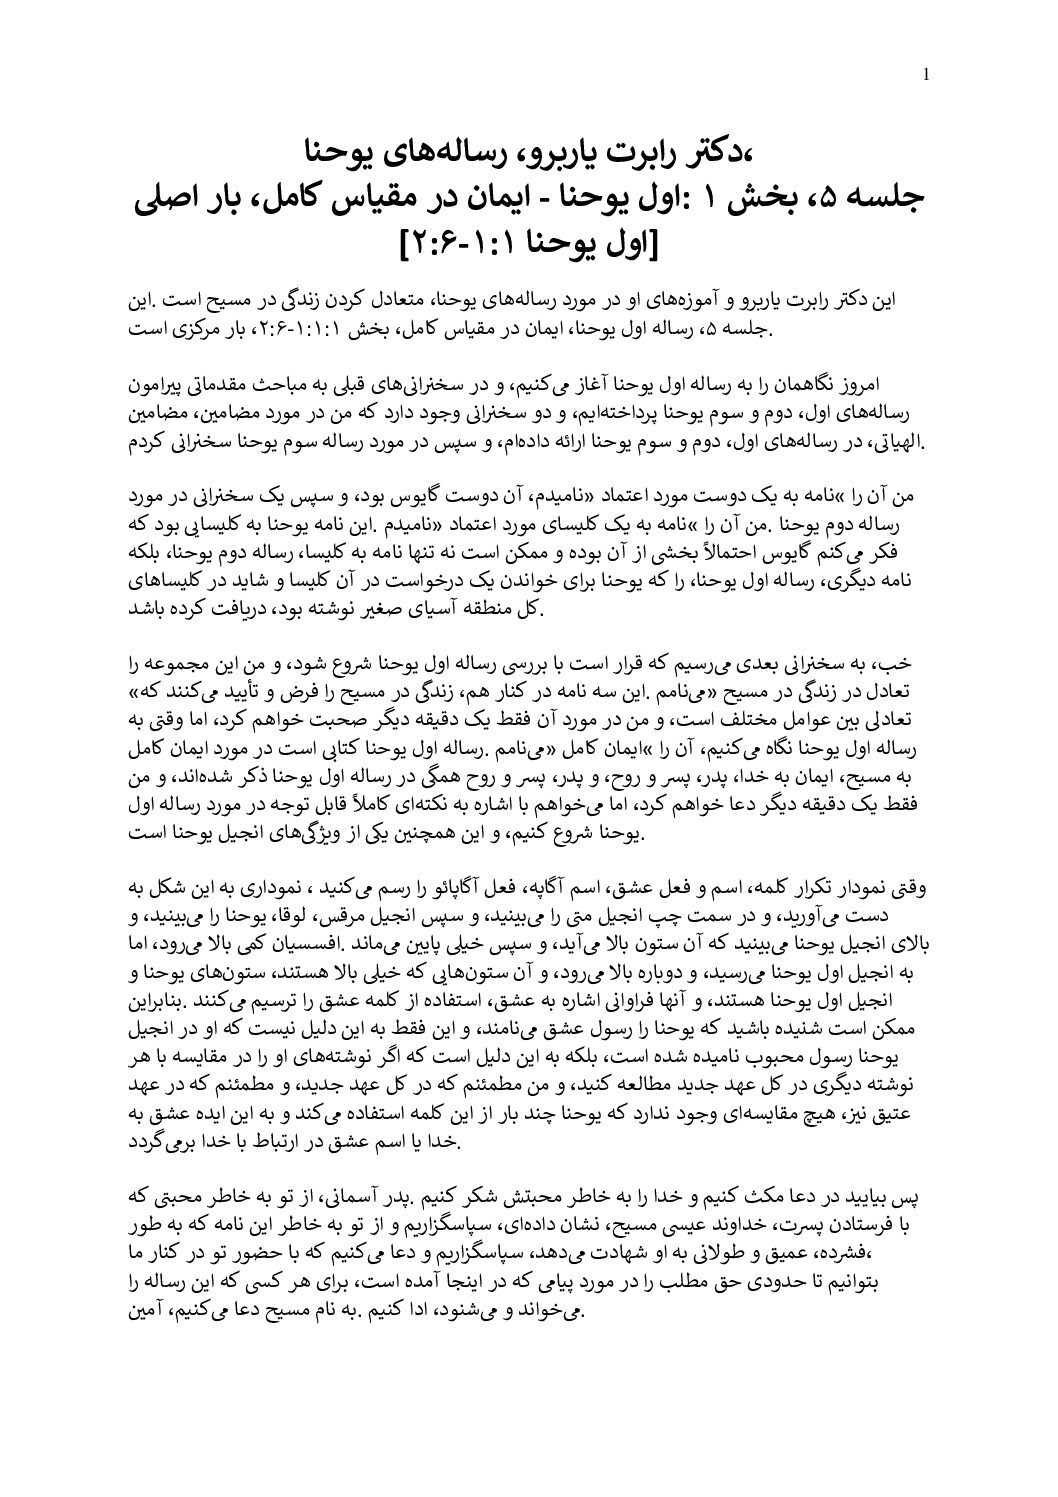 1
دکتر رابرت یاربرو، رساله‌های یوحنا،
جلسه ۵، بخش ۱ :اول یوحنا - ایمان در مقیاس کامل، بار اصلی
[اول یوحنا ۱:۱-۲:۶]
این دکتر رابرت یاربرو و آموزه‌های او در مورد رساله‌های یوحنا، متعادل کردن زندگی در مسیح است .این
جلسه ۵، رساله اول یوحنا، ایمان در مقیاس کامل، بخش ۱:۱:۱-۲:۶، بار مرکزی است.
امروز نگاهمان را به رساله اول یوحنا آغاز می‌کنیم، و در سخنرانی‌های قبلی به مباحث مقدماتی پیرامون
رساله‌های اول، دوم و سوم یوحنا پرداخته‌ایم، و دو سخنرانی وجود دارد که من در مورد مضامین، مضامین
الهیاتی، در رساله‌های اول، دوم و سوم یوحنا ارائه داده‌ام، و سپس در مورد رساله سوم یوحنا سخنرانی کردم.
من آن را »نامه به یک دوست مورد اعتماد «نامیدم، آن دوست گایوس بود، و سپس یک سخنرانی در مورد
رساله دوم یوحنا .من آن را »نامه به یک کلیسای مورد اعتماد «نامیدم .این نامه یوحنا به کلیسایی بود که
فکر می‌کنم گایوس احتمالاً بخشی از آن بوده و ممکن است نه تنها نامه به کلیسا، رساله دوم یوحنا، بلکه
نامه دیگری، رساله اول یوحنا، را که یوحنا برای خواندن یک درخواست در آن کلیسا و شاید در کلیساهای
کل منطقه آسیای صغیر نوشته بود، دریافت کرده باشد.
خب، به سخنرانی بعدی می‌رسیم که قرار است با بررسی رساله اول یوحنا شروع شود، و من این مجموعه را
»تعادل در زندگی در مسیح «می‌نامم .این سه نامه در کنار هم، زندگی در مسیح را فرض و تأیید می‌کنند که
تعادلی بین عوامل مختلف است، و من در مورد آن فقط یک دقیقه دیگر صحبت خواهم کرد، اما وقتی به
رساله اول یوحنا نگاه می‌کنیم، آن را »ایمان کامل «می‌نامم .رساله اول یوحنا کتابی است در مورد ایمان کامل
به مسیح، ایمان به خدا، پدر، پسر و روح، و پدر، پسر و روح همگی در رساله اول یوحنا ذکر شده‌اند، و من
فقط یک دقیقه دیگر دعا خواهم کرد، اما می‌خواهم با اشاره به نکته‌ای کاملاً قابل توجه در مورد رساله اول
یوحنا شروع کنیم، و این همچنین یکی از ویژگی‌های انجیل یوحنا است.
وقتی نمودار تکرار کلمه، اسم و فعل عشق، اسم آگاپه، فعل آگاپائو را رسم می‌کنید ، نموداری به این شکل به
دست می‌آورید، و در سمت چپ انجیل متی را می‌بینید، و سپس انجیل مرقس، لوقا، یوحنا را می‌بینید، و
بالای انجیل یوحنا می‌بینید که آن ستون بالا می‌آید، و سپس خیلی پایین می‌ماند .افسسیان کمی بالا می‌رود، اما
به انجیل اول یوحنا می‌رسید، و دوباره بالا می‌رود، و آن ستون‌هایی که خیلی بالا هستند، ستون‌های یوحنا و
انجیل اول یوحنا هستند، و آنها فراوانی اشاره به عشق، استفاده از کلمه عشق را ترسیم می‌کنند .بنابراین
ممکن است شنیده باشید که یوحنا را رسول عشق می‌نامند، و این فقط به این دلیل نیست که او در انجیل
یوحنا رسول محبوب نامیده شده است، بلکه به این دلیل است که اگر نوشته‌های او را در مقایسه با هر
نوشته دیگری در کل عهد جدید مطالعه کنید، و من مطمئنم که در کل عهد جدید، و مطمئنم که در عهد
عتیق نیز، هیچ مقایسه‌ای وجود ندارد که یوحنا چند بار از این کلمه استفاده می‌کند و به این ایده عشق به
خدا یا اسم عشق در ارتباط با خدا برمی‌گردد.
پس بیایید در دعا مکث کنیم و خدا را به خاطر محبتش شکر کنیم .پدر آسمانی، از تو به خاطر محبتی که
با فرستادن پسرت، خداوند عیسی مسیح، نشان داده‌ای، سپاسگزاریم و از تو به خاطر این نامه که به طور
فشرده، عمیق و طولانی به او شهادت می‌دهد، سپاسگزاریم و دعا می‌کنیم که با حضور تو در کنار ما،
بتوانیم تا حدودی حق مطلب را در مورد پیامی که در اینجا آمده است، برای هر کسی که این رساله را
می‌خواند و می‌شنود، ادا کنیم .به نام مسیح دعا می‌کنیم، آمین.